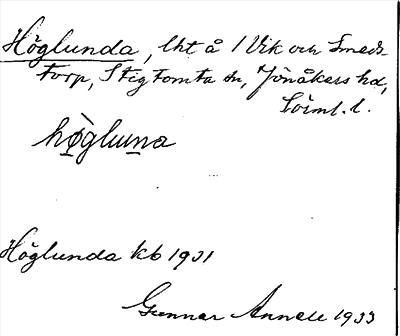 Höglunda, lht å 1 Vik och Smeds-
torp, Stigtomta sn, Jönåkers hd,
Sörml. l.
hø̀gluna
Höglunda kb 1931
Gunnar Annell 1933